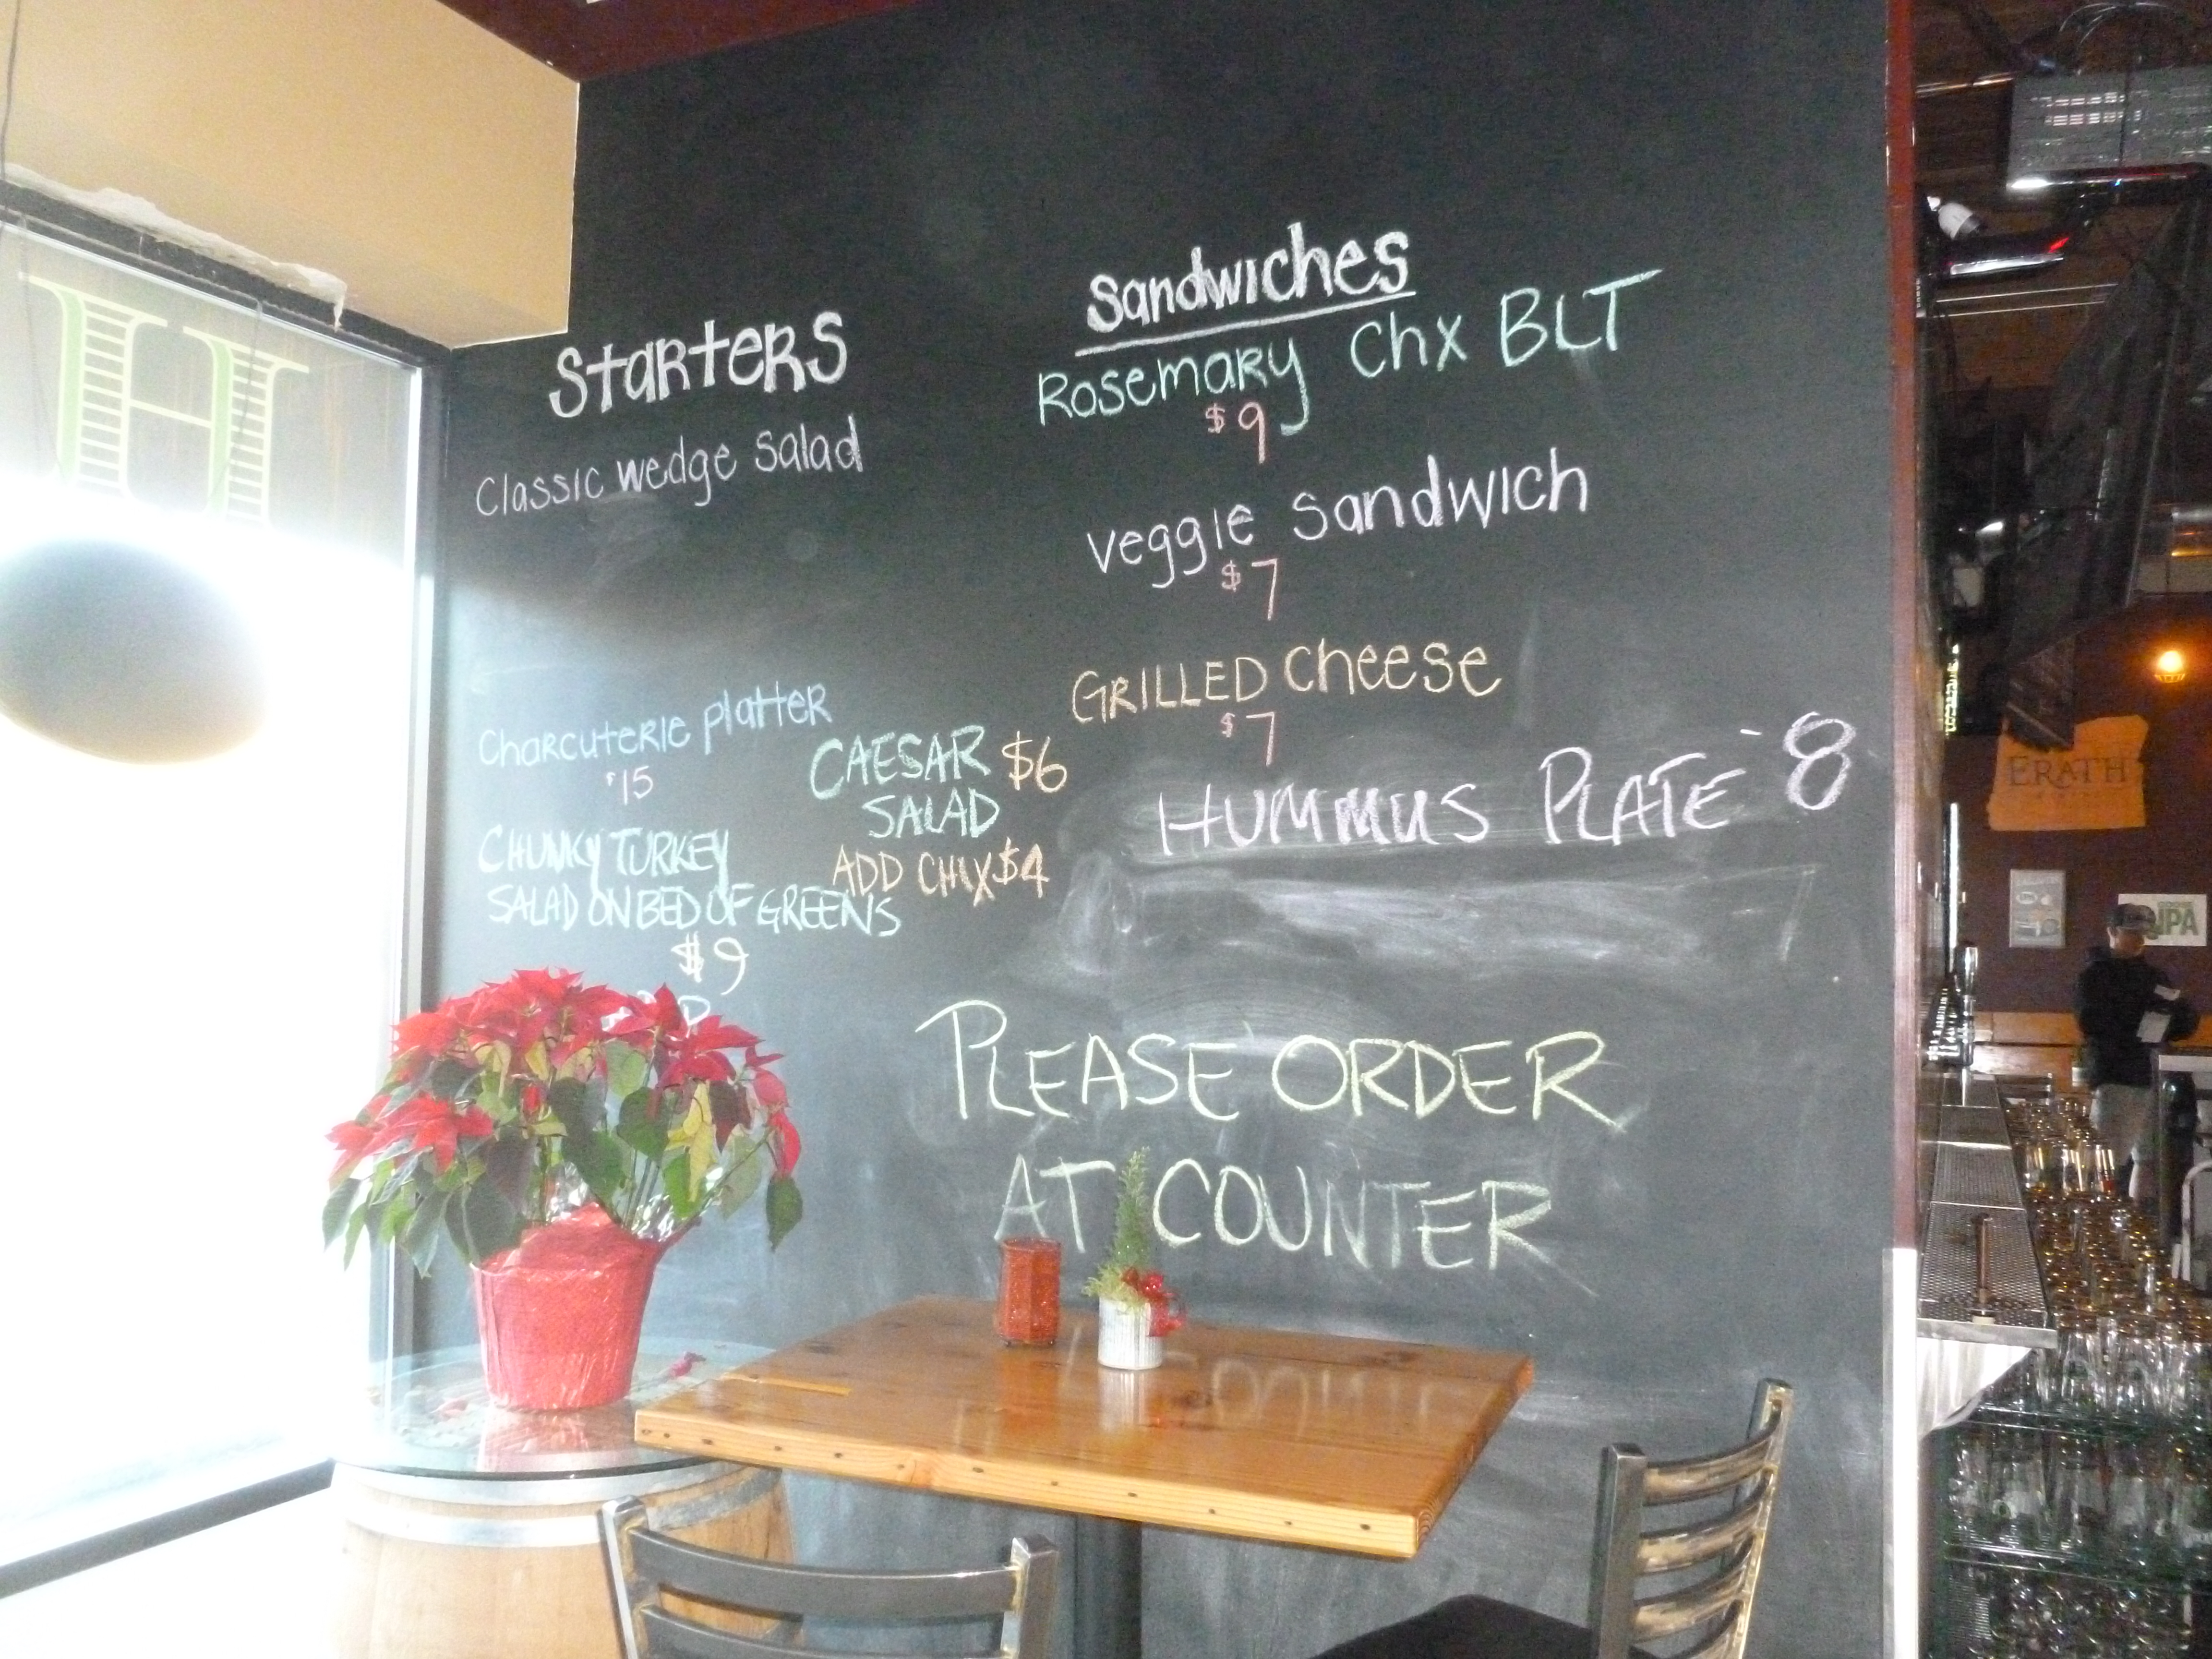 Starters
Classic wedge Salad
Charcuterie platter
$15
CHUNKY TURKEY
SALAD ON BED OF GREENS
$9
CAESAR $6
SALAD
ADD CHIX $4
Sandwiches
Rosemary Chx BLT
$9
veggie Sandwich
$7
GRILLED Cheese
$7
HUMMUS PLATE - 8
PLEASE ORDER
AT COUNTER
H
ERATH
IPA